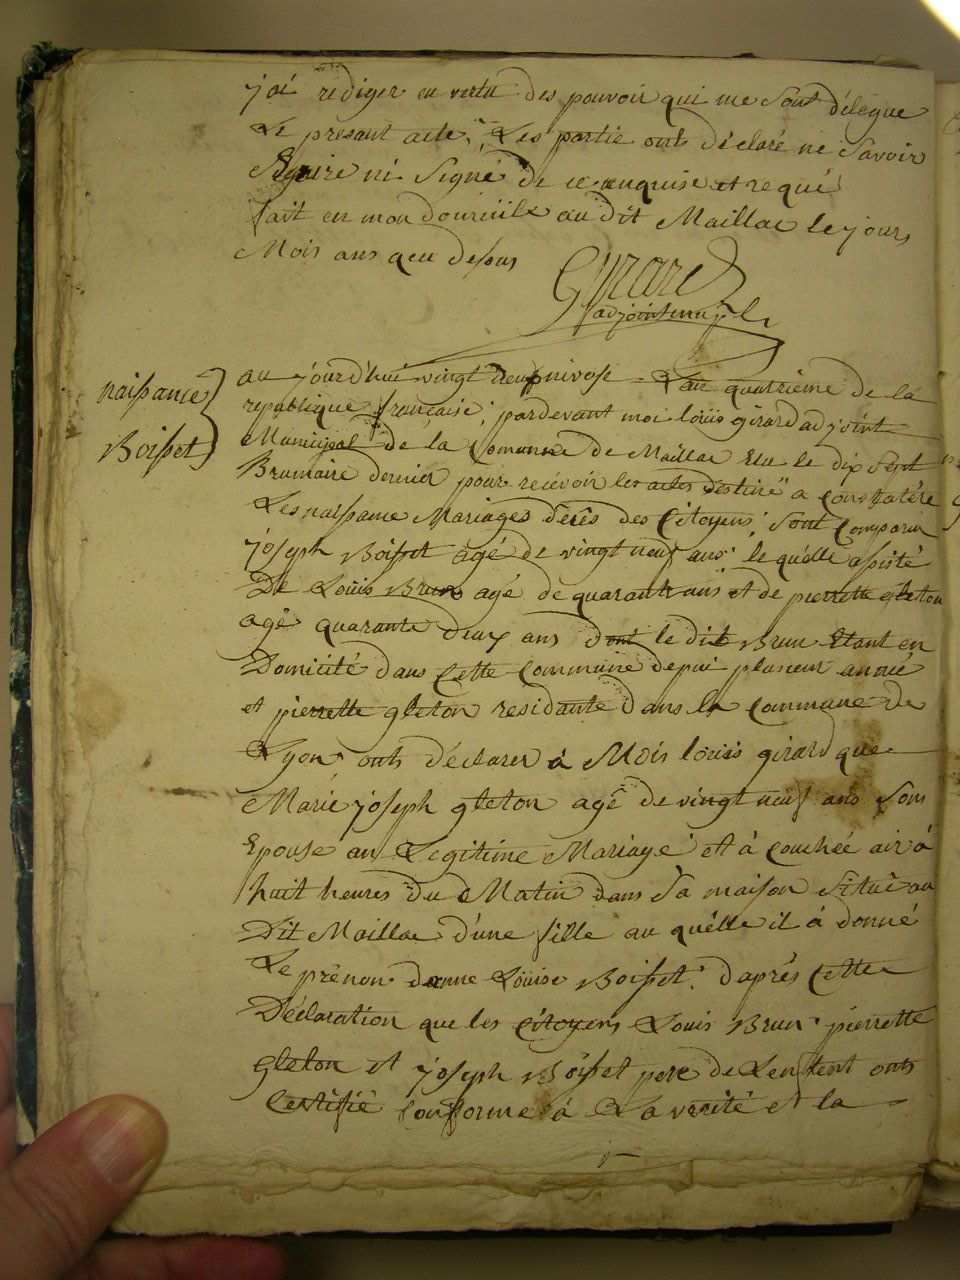 j'ai rediger en vertu des pouvoir qui me sont délégué
Le présant acte, Les partie onts déclaré ne savoir
Ecrire ni signé de ce enquise et requi
fait en mon domicile au dit Maillac le jours
Mois ans que desous
Girard
adjoint mupl
naissance
Boisset
au jourd'huit vingt neuf nivose L'an quatrieme de la
republique française, pardevant moi loüis girard adjoint
Municipal de la Commune de Maillac Elu le dix sept
Brumaire dernier pour recevoir les actes destiné a Constatére
Les naissame Mariages dérês des Citoyens, sont Comparin
joseph Boisset agé de vingt neuf ans, le quélle assisté
De Loüis Brun agé de quarante ans et de pierrette gleton
agé quarante deux ans dont le dit Brun Etant en
Domicilié dans Cette Commune depui plusieur année
et pierrette gleton residante dans la Commune De
Lyon onts déclarer à Mois loüis girard que
Marie joseph gleton agé de vingt neuf ans Son
Epouse an Legitime Mariage et à Couchée air à
huit heures du Matin dans sa maison Situé au
Dit Maillac d'une fille au quélle il à donné
Le prénon danne Louise Boisset, d'aprés Cette
Déclaration que les Citoyens Louis Brun, pierrette
Gleton et joseph Boisset pere de L'enfent onts
Certifié Conforme à La verité et la